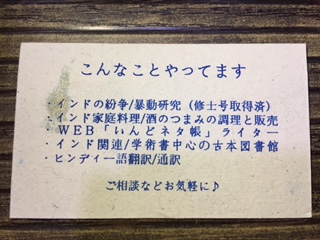 こんなことやってます
・インドの紛争/暴動研究（修士号取得済）
・インド家庭料理/酒のつまみの調理と販売
・WEB「いんどネタ帳」ライター
・インド関連/学術書中心の古本図書館
・ヒンディー語翻訳/通訳
ご相談などお気軽に♪